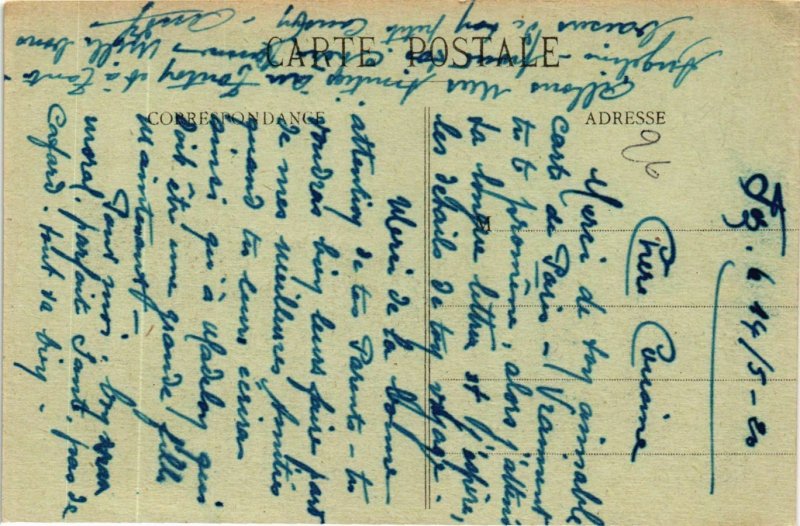 CARTE POSTALE
CORRESPONDANCE
ADRESSE
96
14/5-20
Chère Cousine
Merci de toy aimable
carte de Paris - Vraiment
tu te promène, alors j'attens
ta longue lettre et j'espère,
les détails de toy voyage.
Merci de la bonne
attention de tes Parents - tu
voudras bien leurs faire part
de mes meilleures amitiés
quand tu leurs écriras
ainsi qu'à Madeloy qui
doit être une grande fille
maintenant -
Pour moi, boy
moral parfait Santé, pas de
Cafard. tout va biey.
Allons Mes Amitiés au Tontoy et à Tante
Angeline
baisers de toy petit Cousin